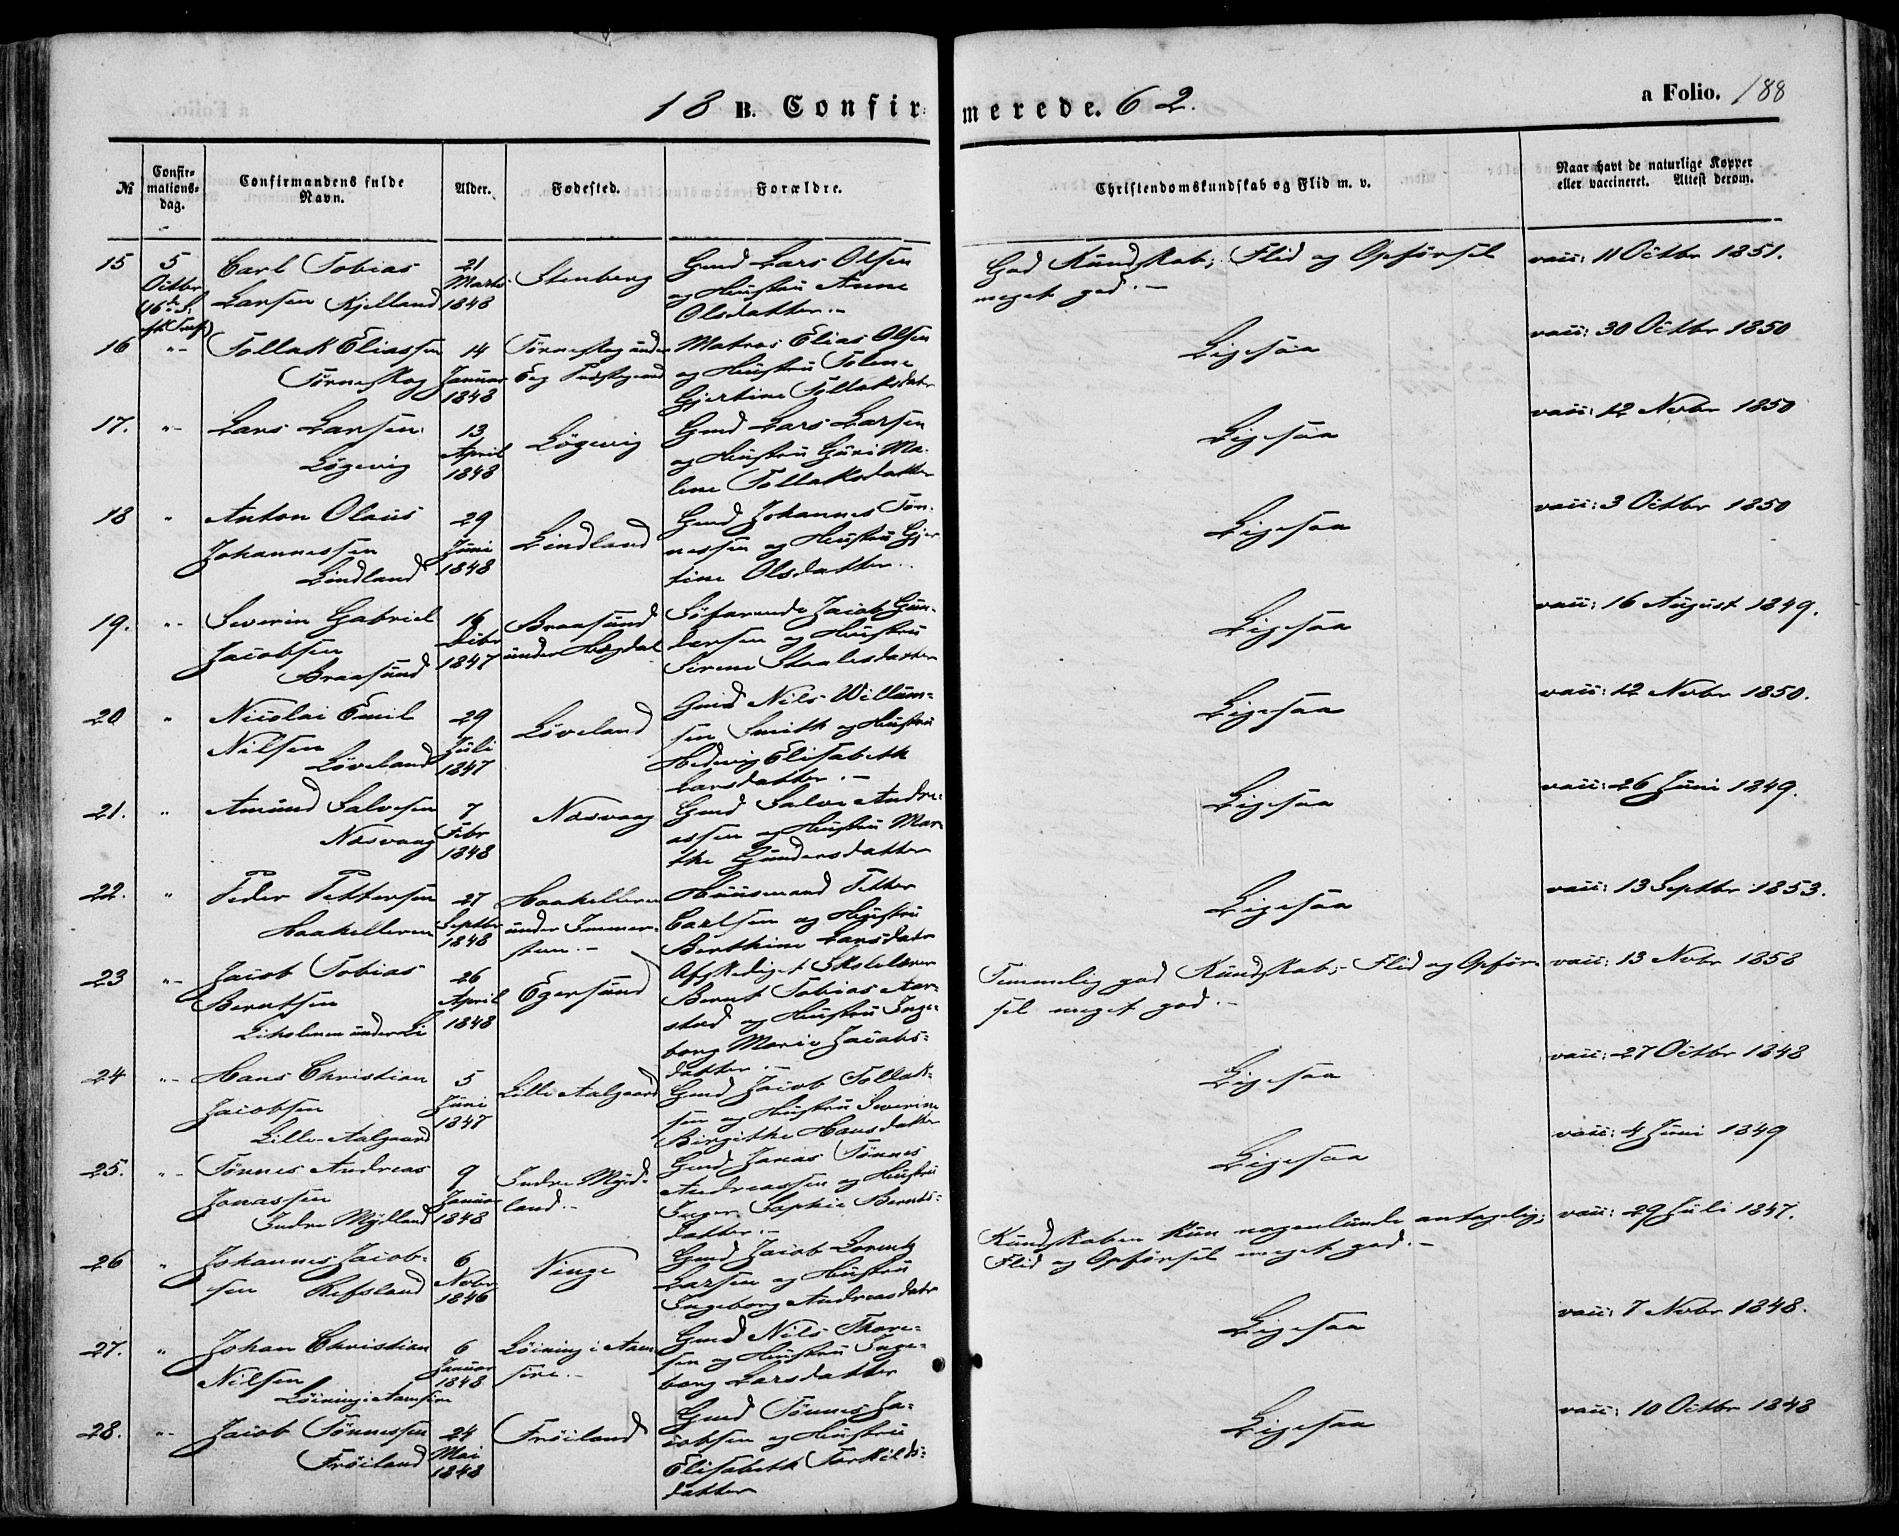 18 B. Confirmerede. 62.
a Folio. 188
№
Confirmations-dag.
Confirmandens fulde Navn.
Alder.
Fødested.
Forældre.
Christendomskundskab og Flid m. v.
Naar havt de naturlige Kopper eller vaccineret. Attest derom.
15 5 Octbr Carl Tobias Larsen Kjelland 21 Marts 1848 Stenberg Gmd Lars Olsen og Hustru Anne Olsdatter.- God Kundskab; Flid og Opførsel meget god.- vacc: 11 Octbr 1851.
16 "- Tollak Eliassen Tørneskog 14 Januar 1848 Tørneskog under Eeg Matros Elias Olsen og Hustru Tolene Gjertine Tollaksdatr Ligesaa vacc: 30 Octbr 1850
17. "- Lars Larsen Løgevig 13 April 1848 Løgevig Gmd Lars Larsen og Hustru Guri Malene Tollaksdatter Ligesaa vacc: 12 Novbr 1850
18 " Anton Olaus Johannessen Lindland 29 Juni 1848 Lindland Gmd Johannes Tønnessen og Hustru Gjertine Olsdatter.. Ligesaa vacc: 3 Octbr 1850
19. "- Severin Gabriel Jacobsen Braasund 16 Decbr 1847 Braasund under Høgdal Søfarende Jacob Gundersen og Hustru Sirene Staalesdatter Ligesaa vacc: 16 August 1849.
20 " Nicolai Emil Nilsen Løveland 29 Juli 1847 Løveland Gmd Nils Willumsen Smith og Hustru Hedevig Elisabeth Larsdatter.- Ligesaa vacc: 12 Novbr 1850.
21. " Amund Salvesen Nosvaag 7 Febr 1848 Nosvaag Gmd Salve Andreassen og Hustru Marthe Gundersdatter Ligesaa vacc: 26 Juni 1849.
22. " Peder Pettersen Haakelleren 27 Septbr 1848 Haakelleren under Immerstein.- Huusmand Petter Carlsen og Hustru Berthine Larsdatr Ligesaa vacc: 13 Septbr 1853.
23 "- Jacob Tobias Berntsen Liholmen under Li 26 April 1848 Egersund Afskediget Skolelærer Bernt Tobias Aarstad og Hustru Ingeborg Marie Jacobsdatter.- Temmelig god Kundskab;- Flid og Opførsel meget god.- vacc: 13 Novbr 1858
24 "- Hans Christian Jacobsen Lille-Aalgaard 5 Juni 1847 Lille Aalgaard Gmd Jacob Tollaksen og Hustru Severine Birgitte Hansdatter Ligesaa vacc: 27 Octbr 1848
25. "- Tønnes Andreas Jonassen Indre Mydland 9 Januar 1848 Indre Mydland.- Gmd Jonas Tønnes Andreassen og Hustru Inger Sophie Berntsdatter.- Ligesaa vacc: 4 Juni 1849
26 " Johannes Jacobsen Refsland 6 Novbr 1846 Vinge Gmd Jacob Lorentz Larsen og Hustru Ingeborg Andreasdatr Kundskaben kun nogenlunde antagelig; Flid og Opførsel meget god.- vacc: 29 Juli 1847.
27. " Johan Christian Nilsen Løining i Aamsire 6 Januar 1848 Løining i Aamsire.- Gmd Nils Thoresen og Hustru Ingeborg Larsdatter Ligesaa vacc: 7 Novbr 1848.
28. "- Jacob Tønnessen Frøiland 24 Mai 1848 Frøiland Gmd Tønnes Jacobsen og Hustru Elisabeth Torkildsdatter Ligesaa vacc: 10 Octbr 1848